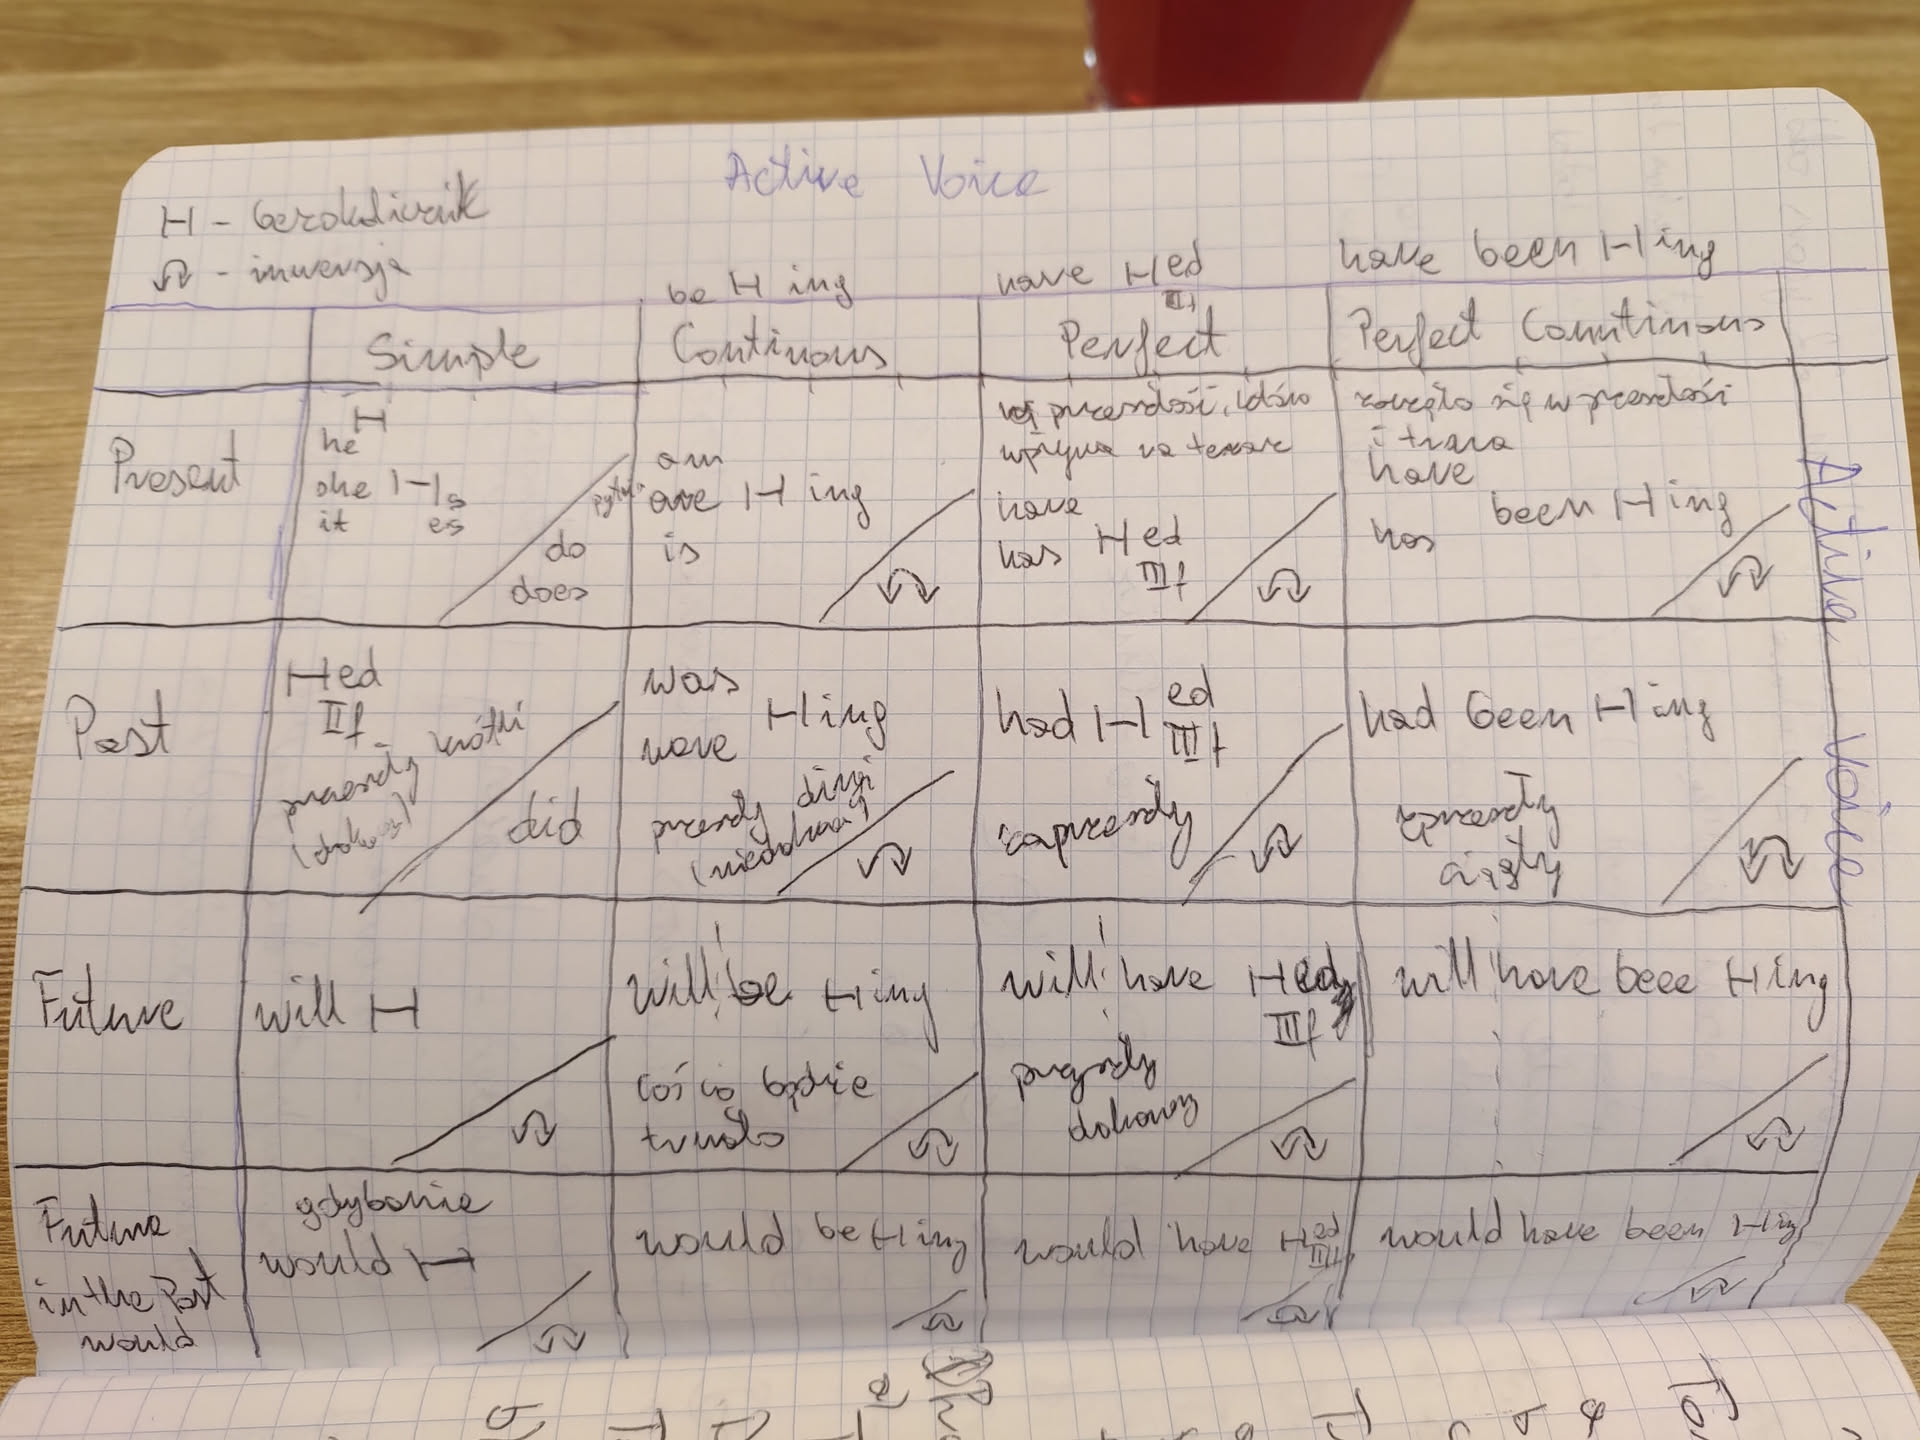 Active Voice
H - bezokolicznik
- inwersja
be H ing
have H ed
III f
have been H ing
Simple
Continous
Perfect
Perfect Countinous
Present
H
he
she H s
it es
pytja
do
does
am
are H ing
is
przeszłości, która
wpływa na teraz
have
has H ed
III f
zaczęło się w przeszłości
i trwa
have
been H ing
has
Active Voice
Past
H ed
II f
przeszły krótki
did
was
H ing
were
przeszły długi
had H ed
III f
zaprzeszły
had been H ing
zaprzeszły
ciągły
Future
will H
will be H ing
coś co będzie
trwało
will have H ed
III f
przyszły
dokonany
will have beee H ing
Future
in the Past
would
gdybanie
would H
would be H ing
would have H ed
III f
would have been H ing